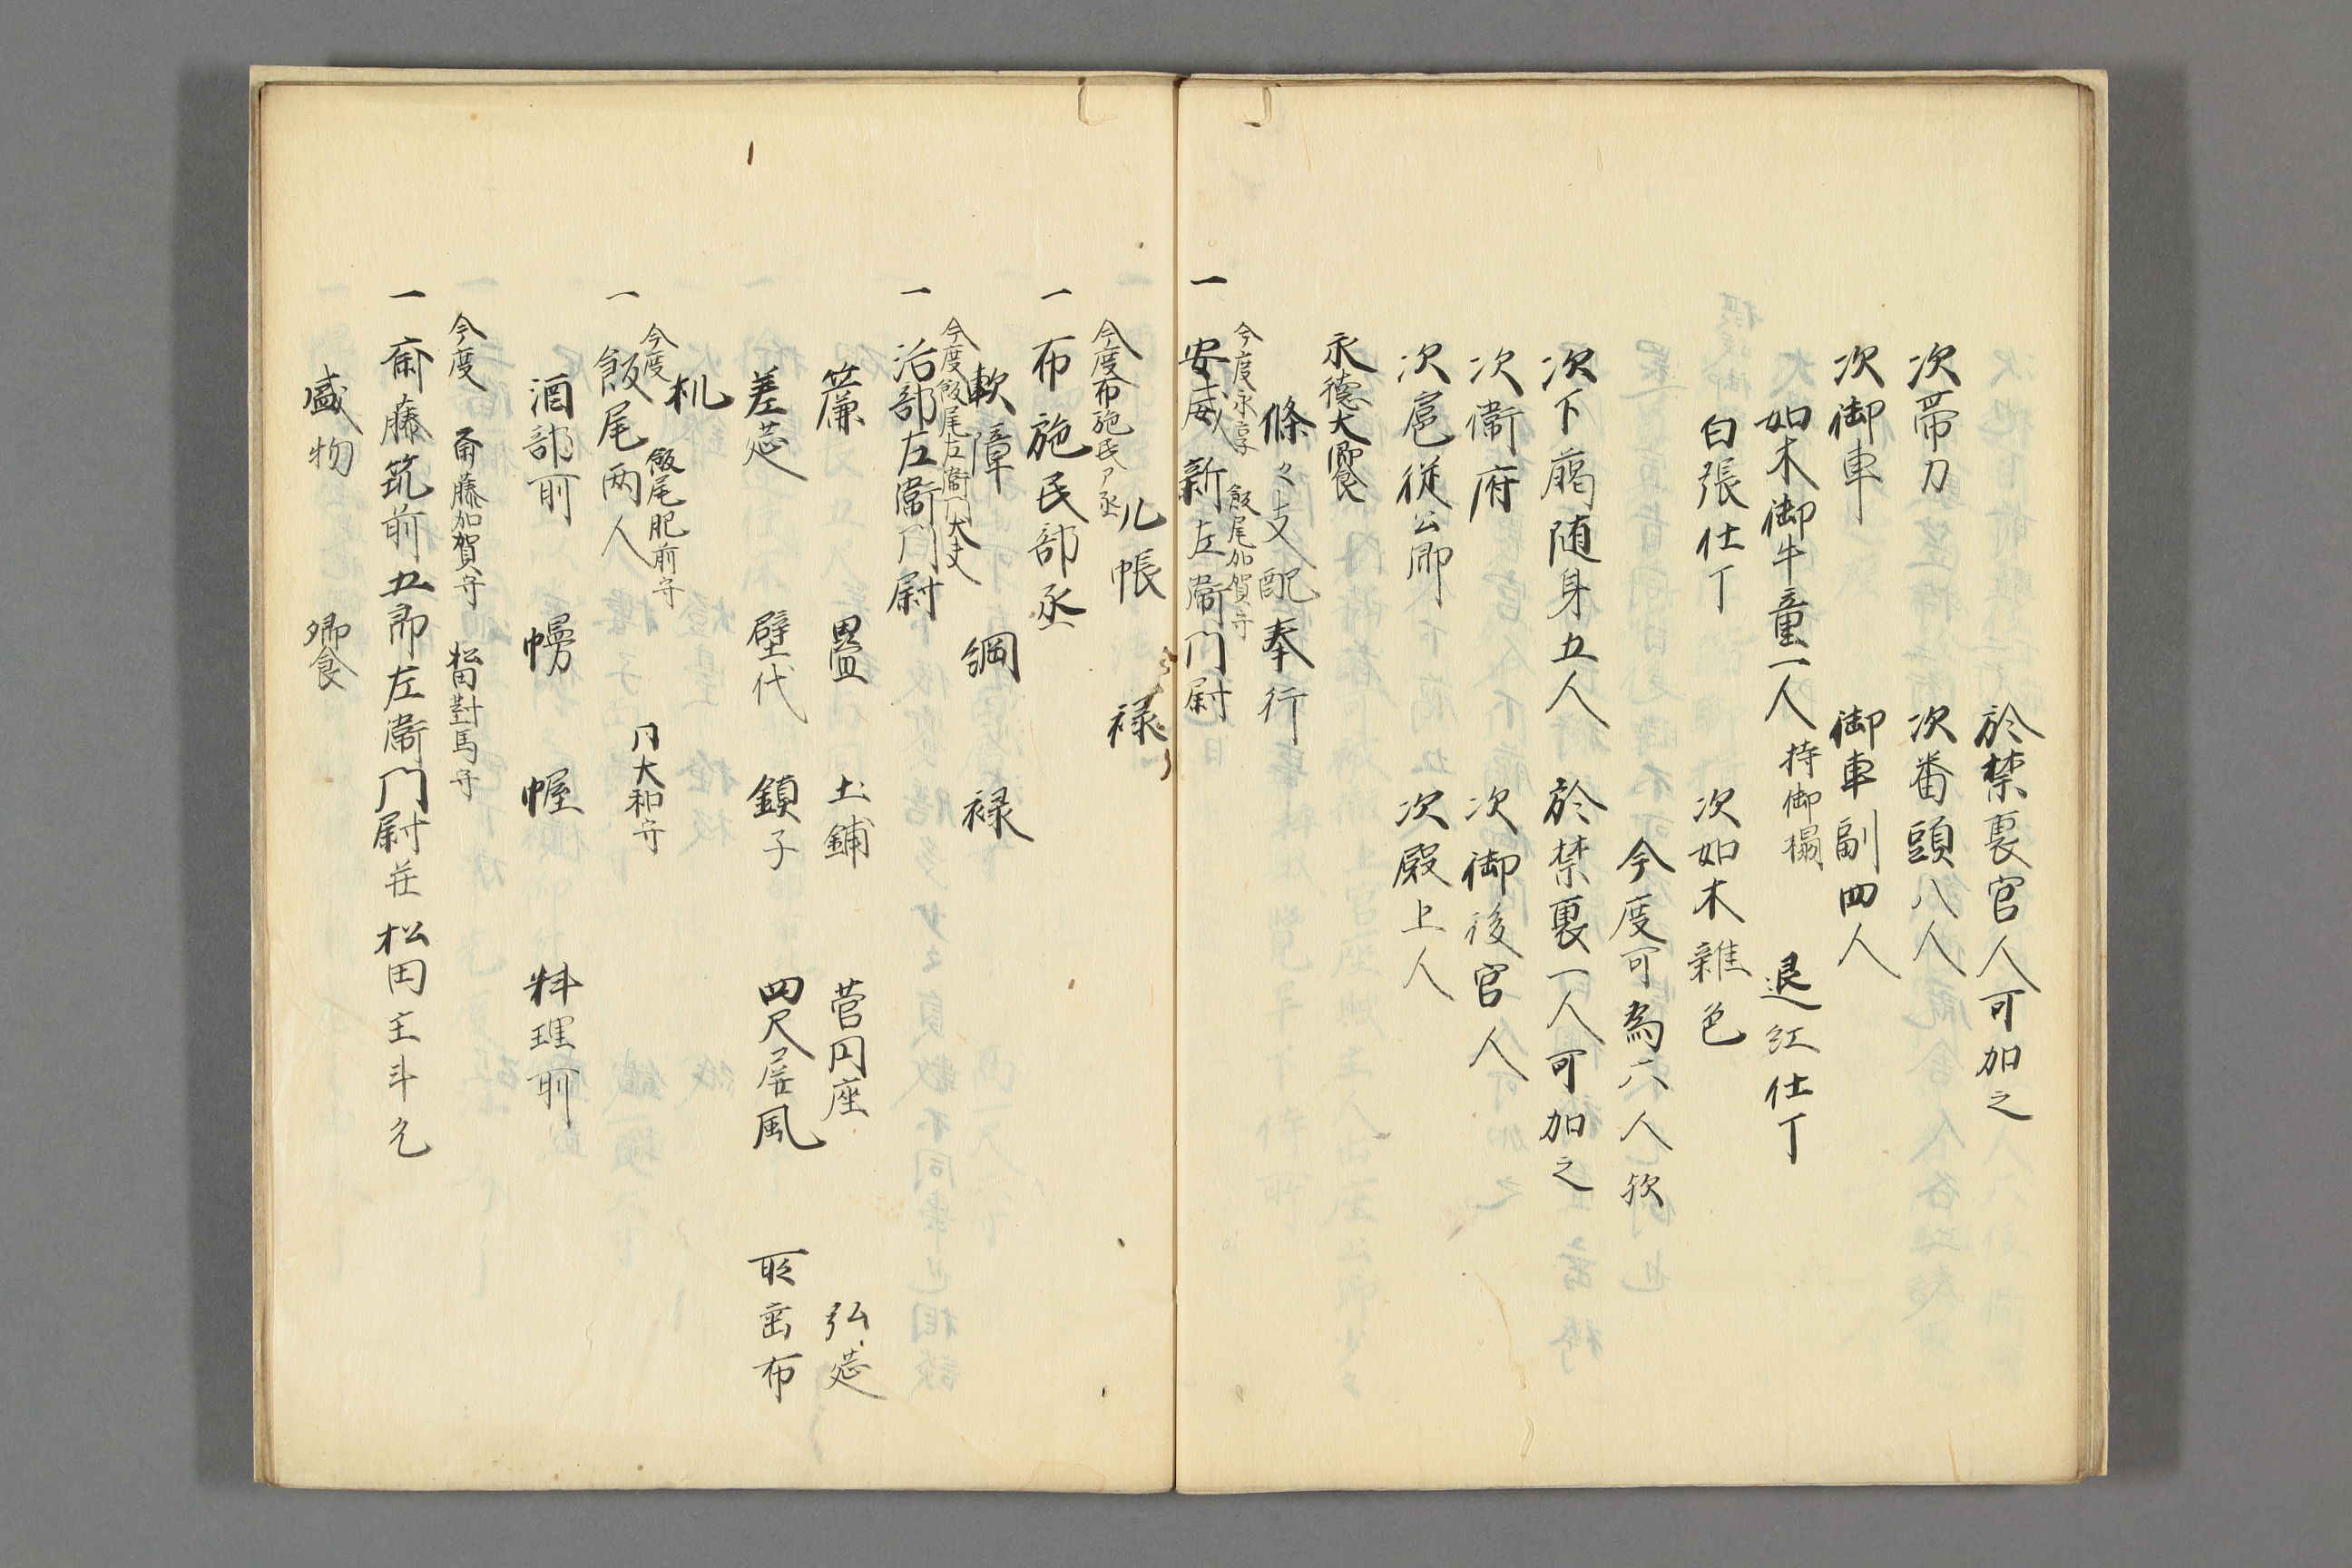 於禁裏官人可加之
次帯刀　次番頭八人
次御車　御車副四人
如木御牛童一人 持御榻　退紅仕丁
白張仕丁　次如木雑色
今度可為六人欤
次下﨟随身五人　於禁裏一人可加之
次衛府　次御後官人
次扈従公卿　次殿上人
永徳大饗
條々支配奉行
今度永享　飯尾加賀守
一 安威新左衛門尉
几帳　禄
今度布施民ア丞
一 布施民部丞
軟障　綱　禄
今度飯尾左衛門大夫
一 治部左衛門尉
簾　畳　土鋪　菅円座　弘莚
差莚　壁代　鎮子　四尺屏風　取出布
机
今度 飯尾肥前守　同大和守
一 飯尾両人
酒部所　幔　幄　料理所
今度 斎藤加賀守　松田對馬守
一 斎藤筑前五郎左衛門尉 松田主斗允
盛物　饗